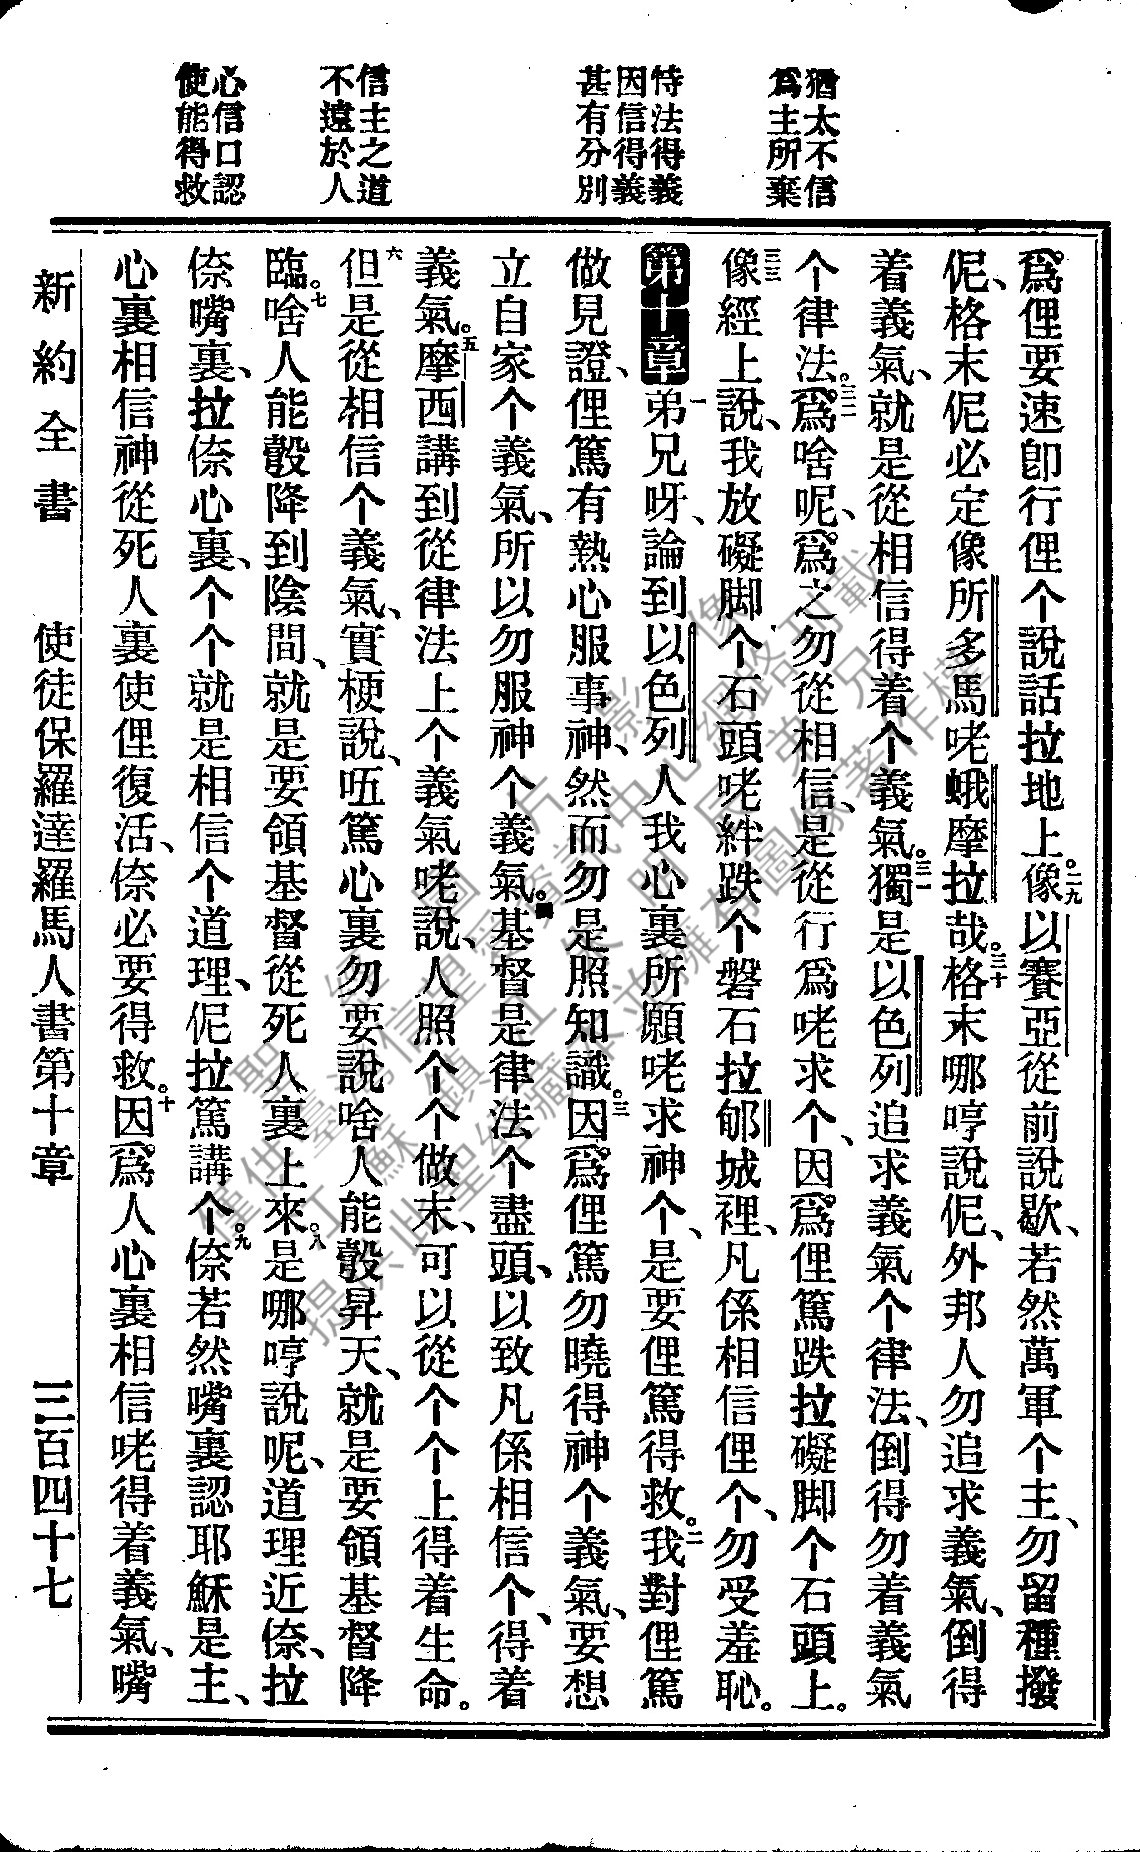 猶太不信
爲主所棄
恃法得義
因信得義
甚有分別
信主之道
不遠於人
心信口認
使能得救
爲俚要速卽行俚个說話拉地上。二九像以賽亞從前說歇、若然萬軍个主、勿留種撥
伲、格末伲必定像所多馬咾蛾摩拉哉。三十格末哪哼說伲、外邦人勿追求義氣、倒得
着義氣、就是從相信得着个義氣。三一獨是以色列追求義氣个律法、倒得勿着義氣
个律法。三二爲啥呢、爲之勿從相信、是從行爲咾求个、因爲俚篤跌拉礙脚个石頭上。
三三像經上說、我放礙脚个石頭咾絆跌个磐石拉郇城裡、凡係相信俚个、勿受羞恥。
第十章 一弟兄呀、論到以色列人我心裏所願咾求神个、是要俚篤得救。二我對俚篤
做見證、俚篤有熱心服事神、然而勿是照知識。三因爲俚篤勿曉得神个義氣、要想
立自家个義氣、所以勿服神个義氣。基督是律法个盡頭、以致凡係相信个、得着
義氣。五摩西講到從律法上个義氣咾說、人照个个做末、可以從个个上得着生命。
六但是從相信个義氣、實梗說、㕶篤心裏勿要說啥人能彀昇天、就是要領基督降
臨。七啥人能彀降到陰間、就是要領基督從死人裏上來。八是哪哼說呢、道理近倷、拉
倷嘴裏、拉倷心裏、个个就是相信个道理、伲拉篤講个。九倷若然嘴裏認耶穌是主、
心裏相信神從死人裏使俚復活、倷必要得救。十因爲人心裏相信咾得着義氣、嘴
新約全書 使徒保羅達羅馬人書第十章 三百四十七
僅供臺灣信望愛資訊中心網路刊載